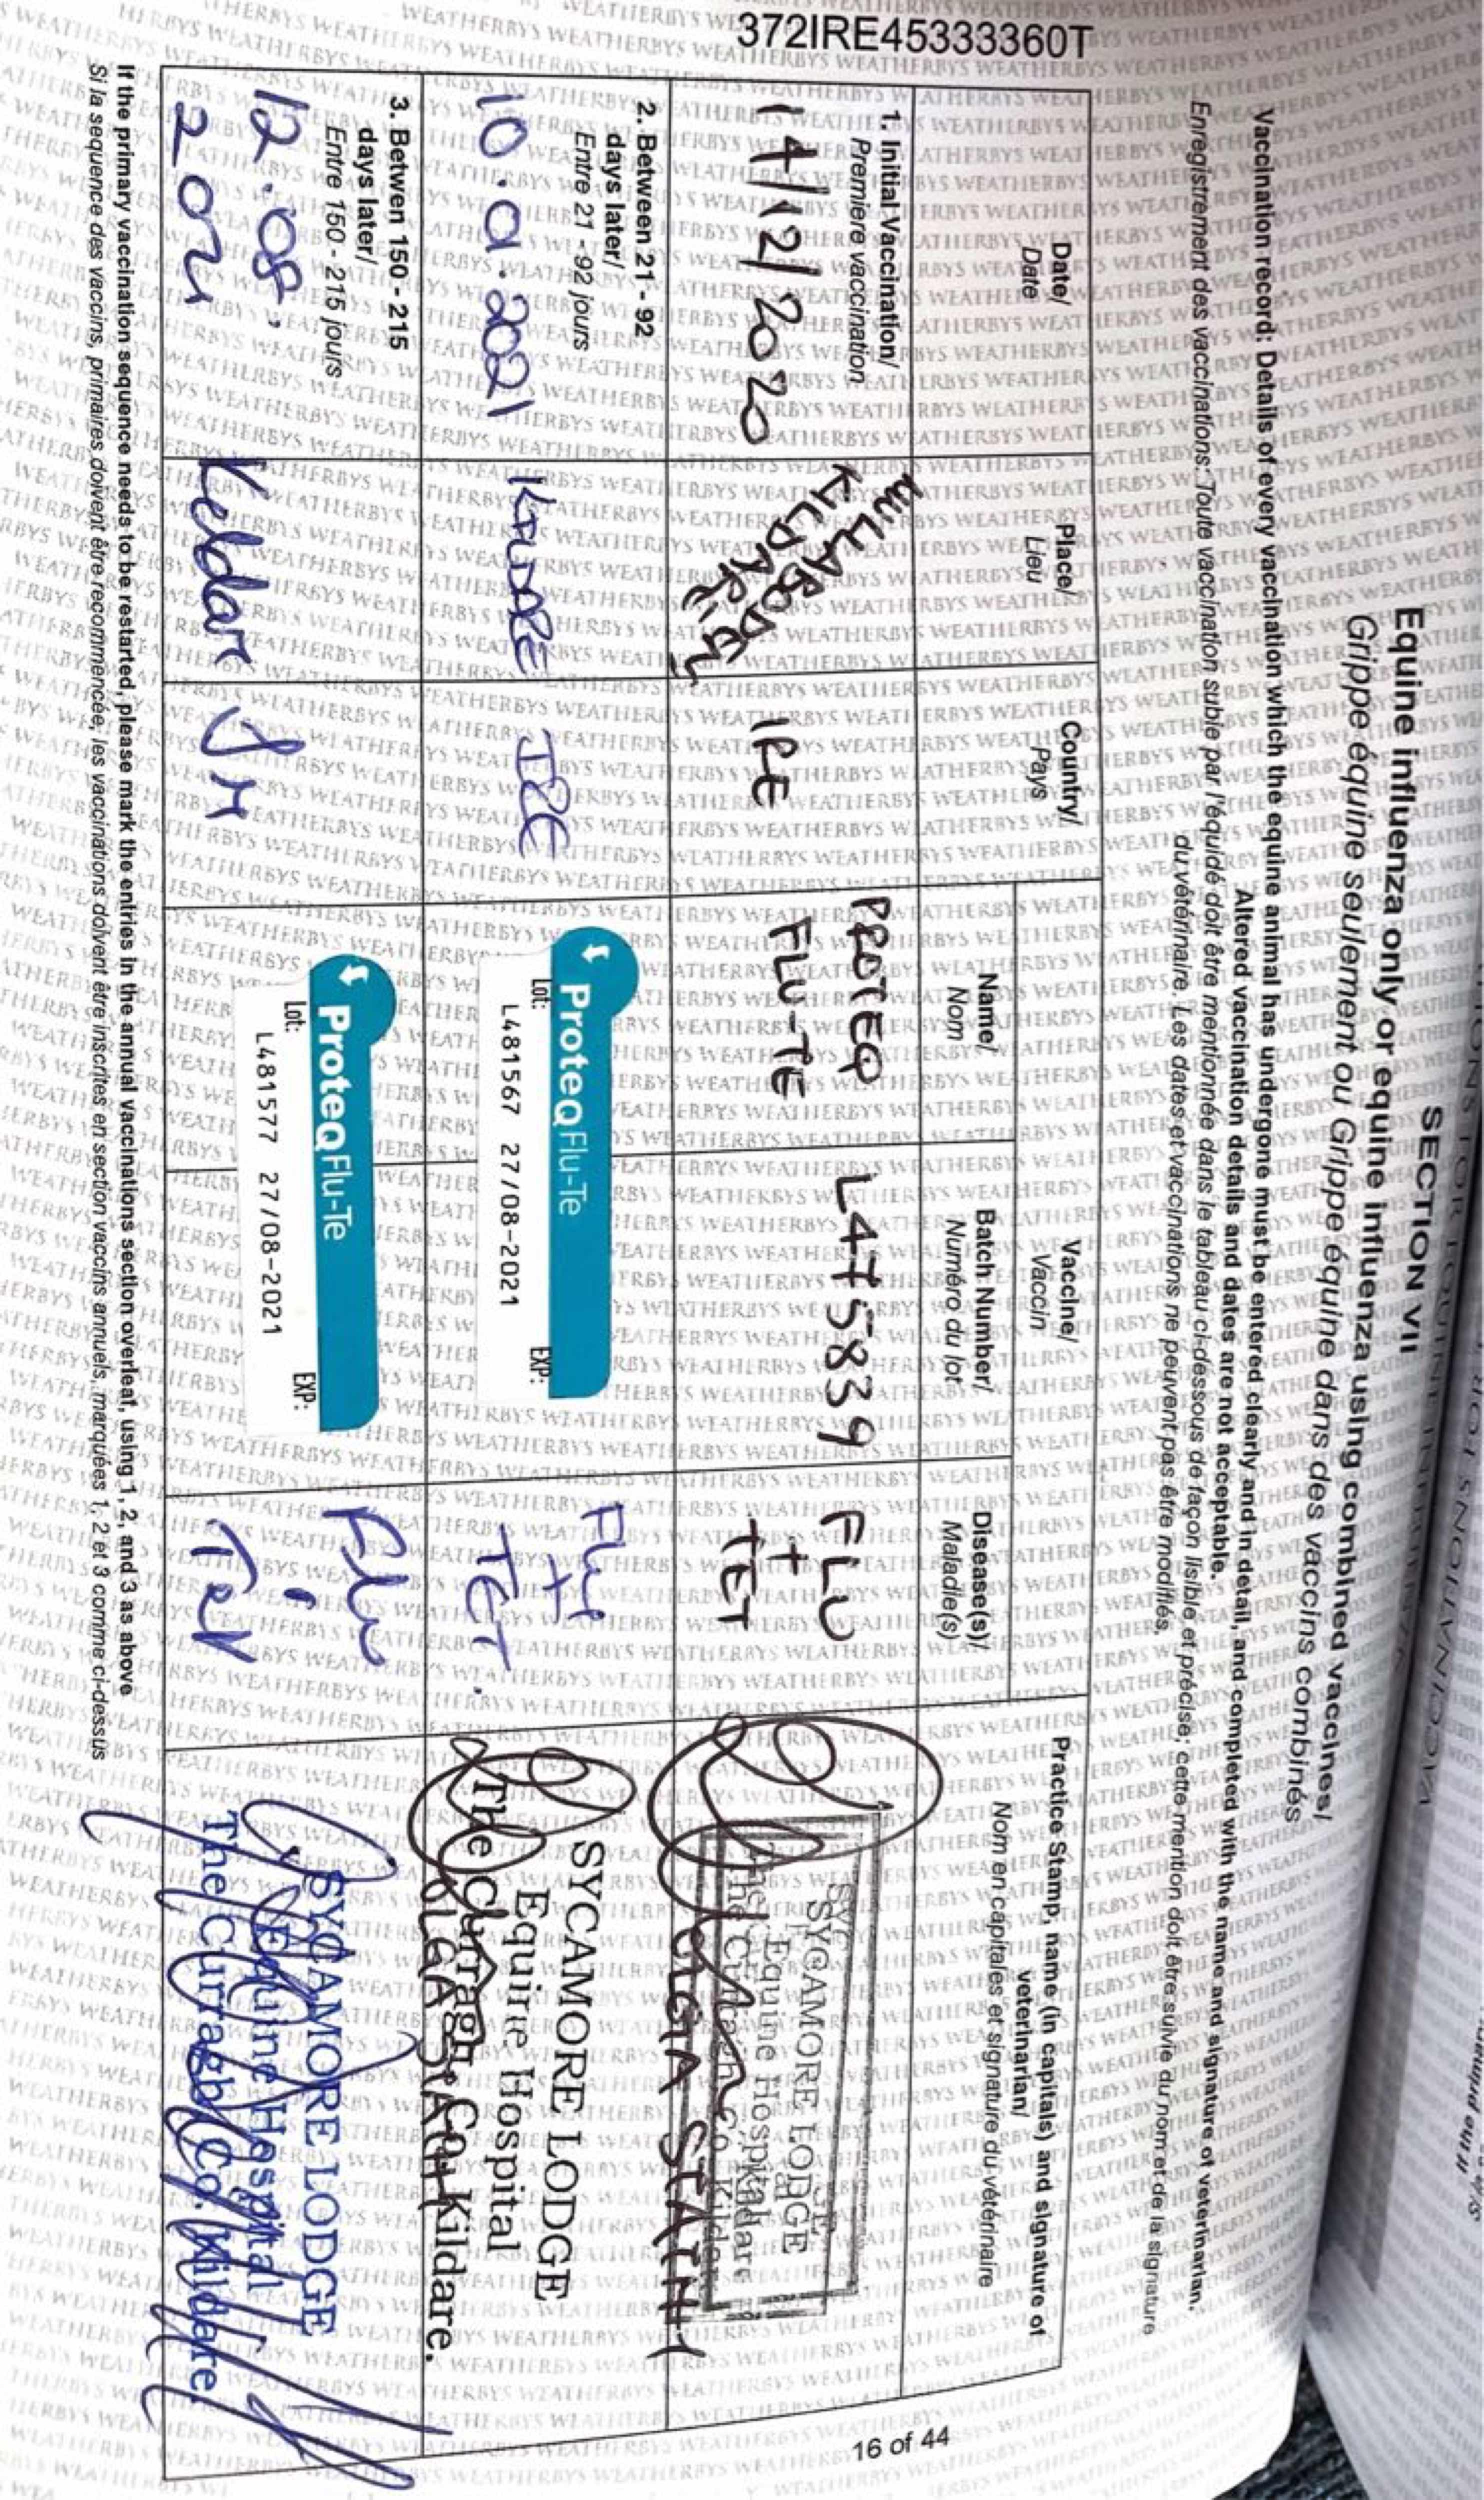 372IRE45333360T
SECTION VII
Equine influenza only or equine influenza using combined vaccines/
Grippe équine seulement ou Grippe équine dans des vaccins combinés
Vaccination record: Details of every vaccination which the equine animal has undergone must be entered clearly and in detail, and completed with the name and signature of veterinarian.
Altered vaccination details and dates are not acceptable.
Enregistrement des vaccinations: Toute vaccination subie par l'équidé doit être mentionnée dans le tableau ci-dessous de façon lisible et précise; cette mention doit être suivie du nom et de la signature
du vétérinaire. Les dates et vaccinations ne peuvent pas être modifiés.
Date/
Date
Place/
Lieu
Country/
Pays
Vaccine/
Vaccin
Name/
Nom
Batch Number/
Numéro du lot
Disease(s)/
Maladie(s)
Practice Stamp, name (in capitals) and signature of
veterinarian/
Nom en capitales et signature du vétérinaire
1. Initial Vaccination/
Premiere vaccination
14/12/2020
KILDARE
IRE
PROTEQ
FLU-TE
L475839
FLU
+
TET
SYCAMORE LODGE
Equine Hospital
The Curragh Co. Kildare
2. Between 21 - 92
days later/
Entre 21 - 92 jours
10.01.2021
KILDARE
IRE
ProteQFlu-Te
Lot: EXP:
L481567 27/08-2021
Flu
+
TET.
SYCAMORE LODGE
Equine Hospital
The Curragh, Co. Kildare.
3. Betwen 150 - 215
days later/
Entre 150 - 215 jours
12.08.
2021
Kildare
ProteQFlu-Te
Lot: EXP:
L481577 27/08-2021
Flu
Tet
SYCAMORE LODGE
Equine Hospital
The Curragh, Co. Kildare.
If the primary vaccination sequence needs to be restarted, please mark the entries in the annual vaccinations section overleaf, using 1, 2, and 3 as above
Si la sequence des vaccins, primaires doivent être recommencée, les vaccinations doivent être inscrites en section vaccins annuels, marquées 1, 2 et 3 comme ci-dessus
16 of 44